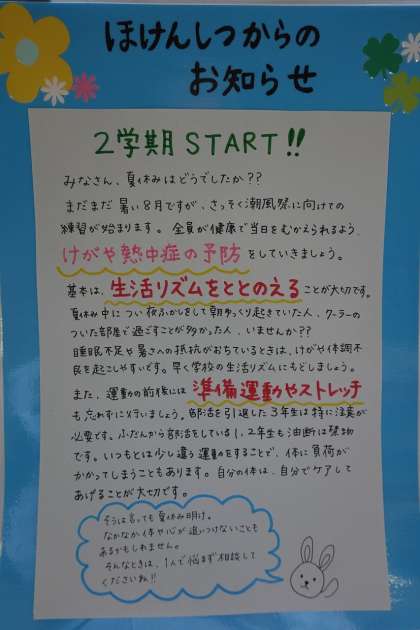 ほけんしつからの
お知らせ
2学期 START!!
みなさん、夏休みはどうでしたか??
まだまだ暑い8月ですが、さっそく潮風祭に向けての
練習が始まります。全員が健康で当日をむかえられるよう、
けがや熱中症の予防をしていきましょう。
基本は、生活リズムをととのえることが大切です。
夏休み中についつい夜ふかしをして朝ゆっくり起きていた人、クーラーの
ついた部屋で過ごすことが多かった人、いませんか??
睡眠不足や暑さへの抵抗がおちているときは、けがや体調不
良を起こしやすいです。早く学校の生活リズムにもどしましょう。
また、運動の前後には準備運動やストレッチ
も忘れずに行いましょう。部活を引退した3年生は特に注意が
必要です。ふだんから部活をしている1,2年生も油断は禁物
です。いつもとは少し違う運動をすることで、体に負荷が
かかってしまうこともあります。自分の体は、自分でケアして
あげることが大切です。
そうは言っても夏休み明け。
なかなか体や心が追いつかないことも
あるかもしれません。
そんなときは、1人で悩まず相談して
くださいね!!